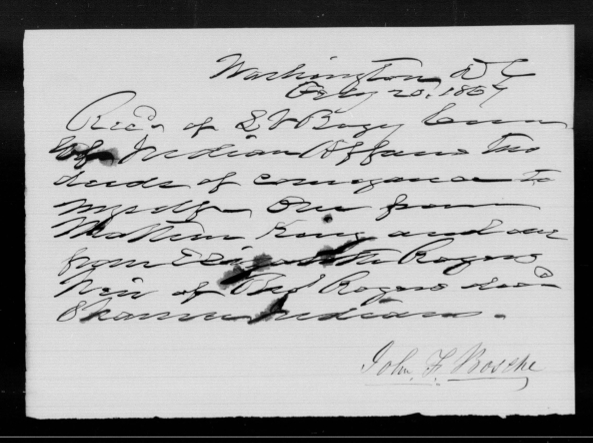 Washington D C
Feby 20, 1867
Rec'd of L V Bogy Com
of Indian Affairs two
deeds of conveyance to
myself One from
King and one
from Elizabeth Rogers
heir of Rogers dec'd
Shawnee Indians.
John F. Bosche